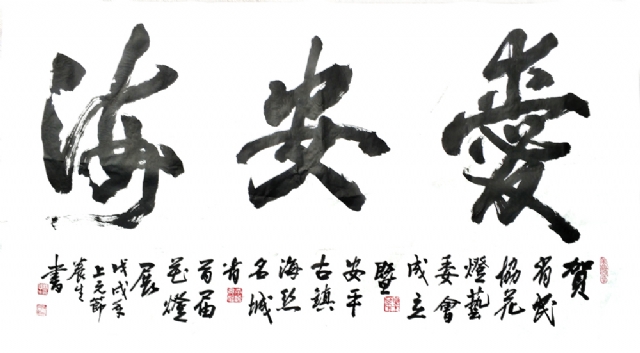 愛安海
賀
省民
協花
燈藝
委會
成立
暨
安平
古鎮
海絲
名城
省
首届
花燈
展
戊戌年
上元節
書